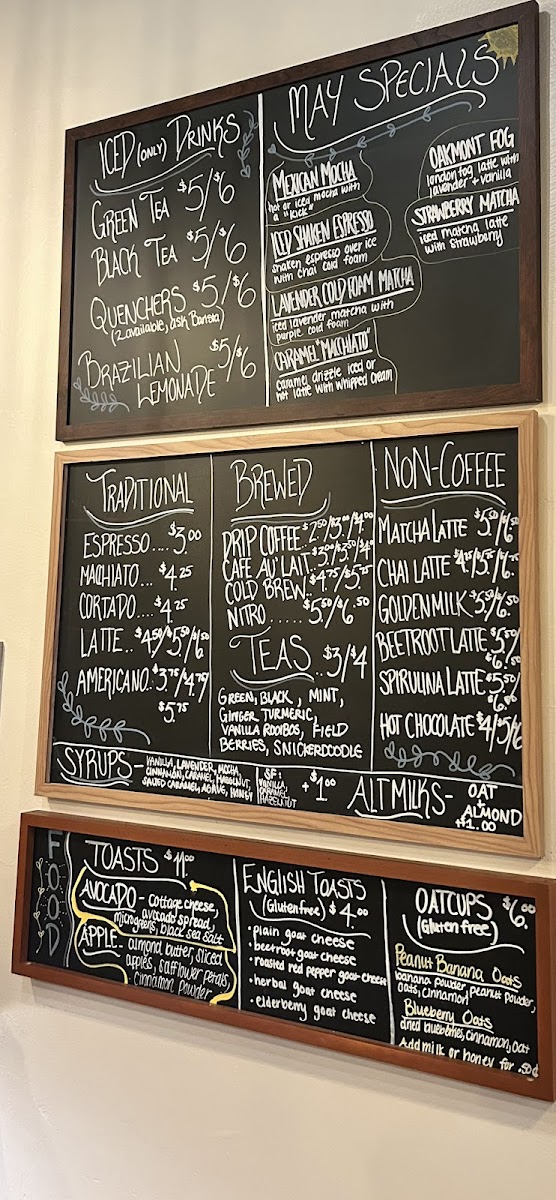 ICED (ONLY) DRINKS
GREEN TEA $5/$6
BLACK TEA $5/$6
QUENCHERS $5/$6
(2 available, ask Barista)
BRAZILIAN
LEMONADE $5/$6
MAY SPECIALS
MEXICAN MOCHA
hot or iced mocha with
a "kick"
ICED SHAKEN ESPRESSO
shaken espresso over ice
with chai cold foam
LAVENDER COLD FOAM MATCHA
iced lavender matcha with
purple cold foam
CARAMEL "MACCHIATO"
caramel drizzle iced or
hot latte with whipped cream
OAKMONT FOG
london fog latte with
lavender + vanilla
STRAWBERRY MATCHA
iced matcha latte
with strawberry
TRADITIONAL
ESPRESSO.... $3.00
MACHIATO... $4.25
CORTADO.... $4.25
LATTE.. $4.50/$5.50/$6.50
AMERICANO.. $3.75/$4.75
$5.75
BREWED
DRIP COFFEE.. $2.50/$3.00/$4.00
CAFE AU LAIT..
COLD BREW.. $4.75/$5.75
NITRO ...... $5.50/$6.50
TEAS..$3/$4
GREEN, BLACK, MINT,
GINGER TURMERIC,
VANILLA ROOIBOS, FIELD
BERRIES, SNICKERDOODLE
NON-COFFEE
MATCHA LATTE $5.50/$6.50
CHAI LATTE
GOLDEN MILK $5.50/$6.50
BEETROOT LATTE $5.50/
$6.50
SPIRULINA LATTE $5.50/
$6.50
HOT CHOCOLATE $4/$5/$6
SYRUPS- VANILLA, LAVENDER, MOCHA,
CINNAMON, CARAMEL, HAZELNUT,
SALTED CARAMEL, AGAVE, HONEY
SF:
VANILLA,
CARAMEL
HAZELNUT
+ $1.00
ALT MILKS- OAT
+
ALMOND
+$1.00
FOOD
TOASTS $11.00
AVOCADO - cottage cheese,
avocado spread,
microgreens, black sea salt
APPLE- almond butter, sliced
apples, safflower petals,
cinnamon powder
ENGLISH TOASTS
(Gluten free) $4.00
• plain goat cheese
• beetroot goat cheese
• roasted red pepper goat cheese
• herbal goat cheese
• elderberry goat cheese
OATCUPS $6.00
(Gluten free)
Peanut Banana Oats
banana powder, peanut powder,
oats, cinnamon
Blueberry Oats
dried blueberries, cinnamon, oat
Add milk or honey for .50¢